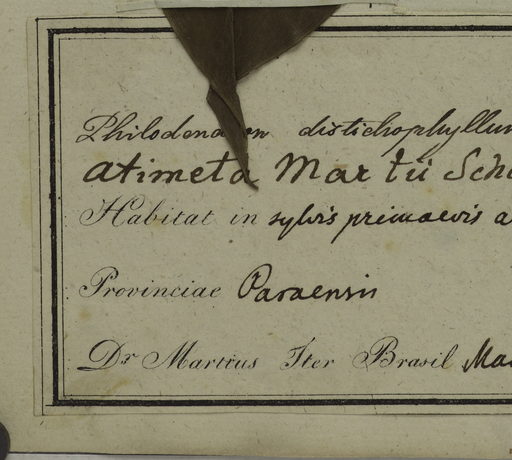 Philodendron distichophyllum
atimeta Martii Scho
Habitat in sylvis primaevis a
Provinciae Paraensis
Dr Martius Iter Brasil Mai